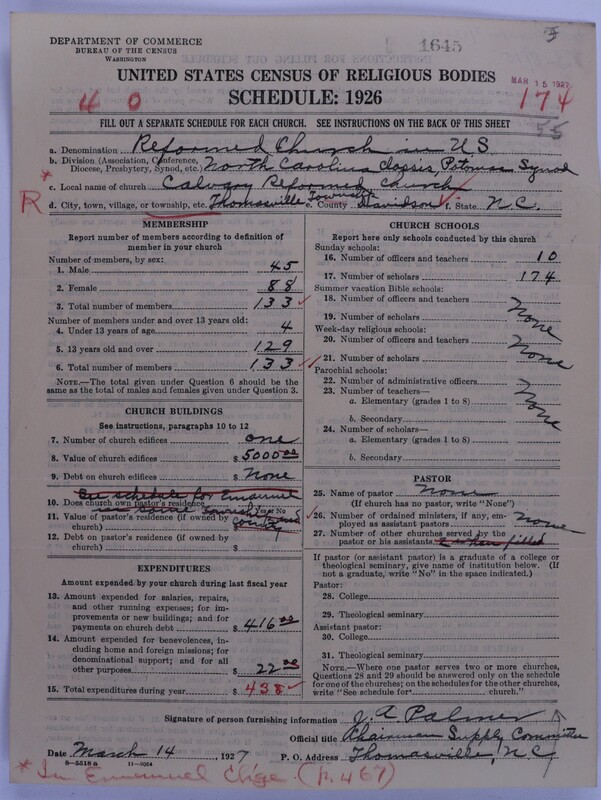 DEPARTMENT OF COMMERCE
BUREAU OF THE CENSUS
WASHINGTON
1645
UNITED STATES CENSUS OF RELIGIOUS BODIES
MAR 15 1927
SCHEDULE: 1926
4 0
174
FILL OUT A SEPARATE SCHEDULE FOR EACH CHURCH. SEE INSTRUCTIONS ON THE BACK OF THIS SHEET
55
a. Denomination Reformed Church in U.S.
b. Division (Association, Conference, Diocese, Presbytery, Synod, etc.) North Carolina Classis, Potomac Synod
c. Local name of church Calvary Reformed Church
R * d. City, town, village, or township, etc. Thomasville Township e. County Davidson f. State N.C.
MEMBERSHIP
Report number of members according to definition of
member in your church
Number of members, by sex:
1. Male 45
2. Female 88
3. Total number of members 133
Number of members under and over 13 years old:
4. Under 13 years of age 4
5. 13 years old and over 129
6. Total number of members 133
NOTE.—The total given under Question 6 should be the
same as the total of males and females given under Question 3.
CHURCH BUILDINGS
See instructions, paragraphs 10 to 12
7. Number of church edifices one
8. Value of church edifices $ 5000.00
9. Debt on church edifices $ None
See schedule for Emanuel
10. Does church own pastor's residence
11. Value of pastor's residence (if owned by
church)
12. Debt on pastor's residence (if owned by
church) $
EXPENDITURES
Amount expended by your church during last fiscal year
13. Amount expended for salaries, repairs,
and other running expenses; for im-
provements or new buildings; and for
payments on church debt $ 416.00
14. Amount expended for benevolences, in-
cluding home and foreign missions; for
denominational support; and for all
other purposes $ 22.00
15. Total expenditures during year $ 438
CHURCH SCHOOLS
Report here only schools conducted by this church
Sunday schools:
16. Number of officers and teachers 10
17. Number of scholars 174
Summer vacation Bible schools:
18. Number of officers and teachers None
19. Number of scholars
Week-day religious schools:
20. Number of officers and teachers None
21. Number of scholars
Parochial schools:
22. Number of administrative officers
23. Number of teachers— None
a. Elementary (grades 1 to 8)
b. Secondary
24. Number of scholars—
a. Elementary (grades 1 to 8)
b. Secondary
PASTOR
25. Name of pastor None
(If church has no pastor, write "None")
26. Number of ordained ministers, if any, em-
ployed as assistant pastors None
27. Number of other churches served by the
pastor or his assistants
If pastor (or assistant pastor) is a graduate of a college or
theological seminary, give name of institution below. (If
not a graduate, write "No" in the space indicated.)
Pastor:
28. College
29. Theological seminary
Assistant pastor:
30. College
31. Theological seminary
NOTE.—Where one pastor serves two or more churches,
Questions 28 and 29 should be answered only on the schedule
for one of the churches; on the schedules for the other churches,
write "See schedule for church."
Signature of person furnishing information J. A. Palmer
Official title Chairman Supply Committee
Date March 14 1927 P. O. Address Thomasville, N.C.
8—5518 a 11—9054
* In Emmanuel Chge. (p. 467)